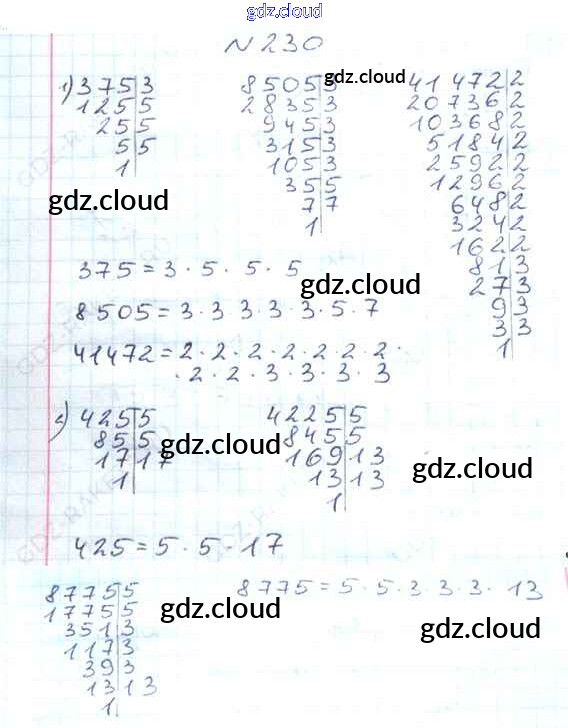 gdz.cloud
N 230
1) 375|3
125|5
25|5
5|5
1|
8505|3
gdz.cloud
2835|3
945|3
315|3
105|3
35|5
7|7
1|
41472|2
20736|2
10368|2
5184|2
2592|2
1296|2
648|2
324|2
162|2
81|3
27|3
9|3
3|3
1|
gdz.cloud
375 = 3 · 5 · 5 · 5
gdz.cloud
8505 = 3 · 3 · 3 · 3 · 3 · 5 · 7
41472 = 2 · 2 · 2 · 2 · 2 · 2 · 2 ·
· 2 · 2 · 3 · 3 · 3 · 3
2) 425|5
85|5
17|17
1|
gdz.cloud
4225|5
845|5
169|13
13|13
1|
gdz.cloud
425 = 5 · 5 · 17
8775|5
1775|5
351|3
117|3
39|3
13|13
1|
8775 = 5 · 5 · 3 · 3 · 3 · 13
gdz.cloud
gdz.cloud